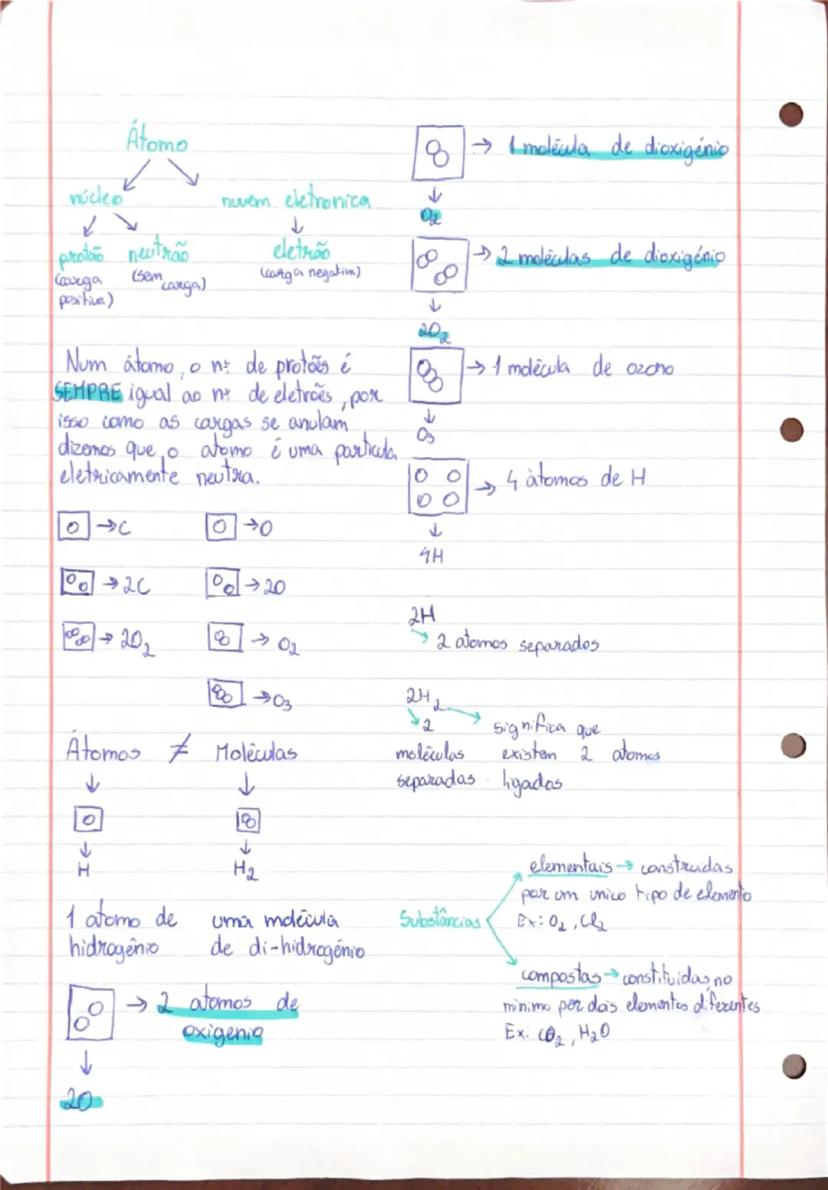 Átomo
núcleo nuvem eletronica
protão neutrão eletrão
(carga positiva) (sem carga) (carga negativa)
Num átomo, o nº de protões é
SEMPRE igual ao nº de eletrões, por
isso como as cargas se anulam
dizemos que o atomo é uma particula
eletricamente neutra.
→C →O
→2C →2O
→2O₂ →O₂
→O₃
Átomos ≠ Moléculas
↓ ↓
↓ ↓
H H₂
1 atomo de uma molécula
hidrogênio de di-hidrogénio
→ 2 atomos de
oxigenio
↓
2O
→ 1 molécula de dioxigénio
↓
O₂
→ 2 moléculas de dioxigénio
↓
2O₂
→ 1 molécula de ozono
↓
O₃
→ 4 àtomos de H
↓
4H
2H
→ 2 atomos separados
2H₂
2 significa que
moléculas existem 2 atomos
separadas ligados
Substâncias
elementais → construidas
por um unico tipo de elemento
Ex: O₂, Cl₂
compostas → constituidas, no
minimo por dois elementos diferentes
Ex: CO₂, H₂O